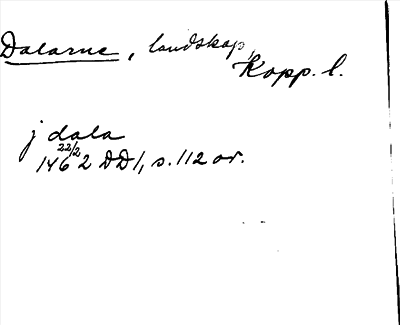 Dalarne, landskap,
Kopp. l.
j dala
22/2
1462 DD1, s. 112 or.